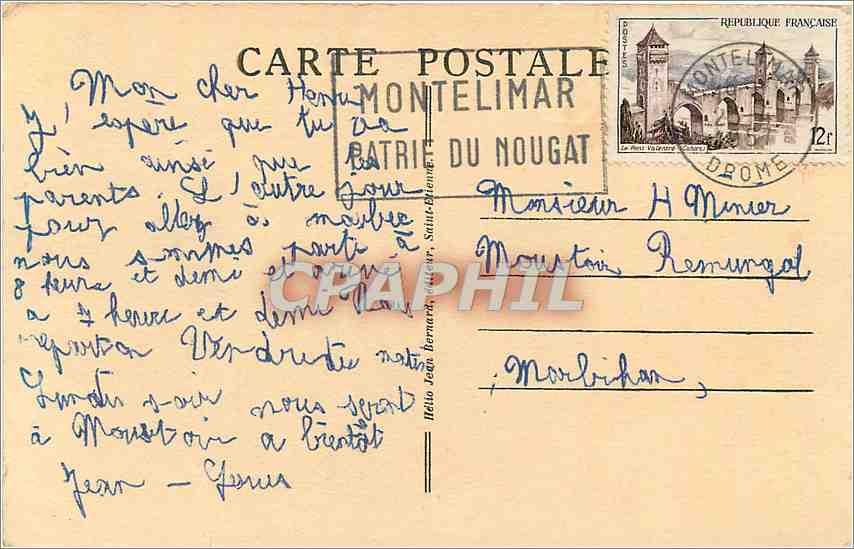 CARTE POSTALE
MONTELIMAR
PATRIE DU NOUGAT
REPUBLIQUE FRANÇAISE
POSTES
Le Pont Valentré (Cahors)
12f
MONTELIMAR
DROME
Mon cher Henri
J'espère que tu va
bien ainsi que tes
parents. L'autre jour
pour aller à
nous sommes parti à
8 heures et demi et arrivé
a 7 heure et demi Nous
reparton Vendredi matin
Lundis soir nous seront
à Moustoir a bientôt
Jean -
Monsieur H Minier
Moustoir Remungol
Morbihan,
Hélio Jean Bernard, éditeur, Saint-Etienne
CPAPHIL